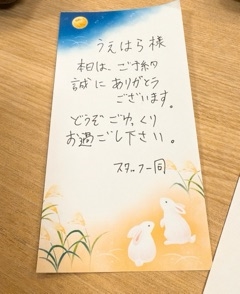 うえはら様
本日は、ご予約
誠にありがとう
ございます。
どうぞごゆっくり
お過ごし下さい。
スタッフ一同